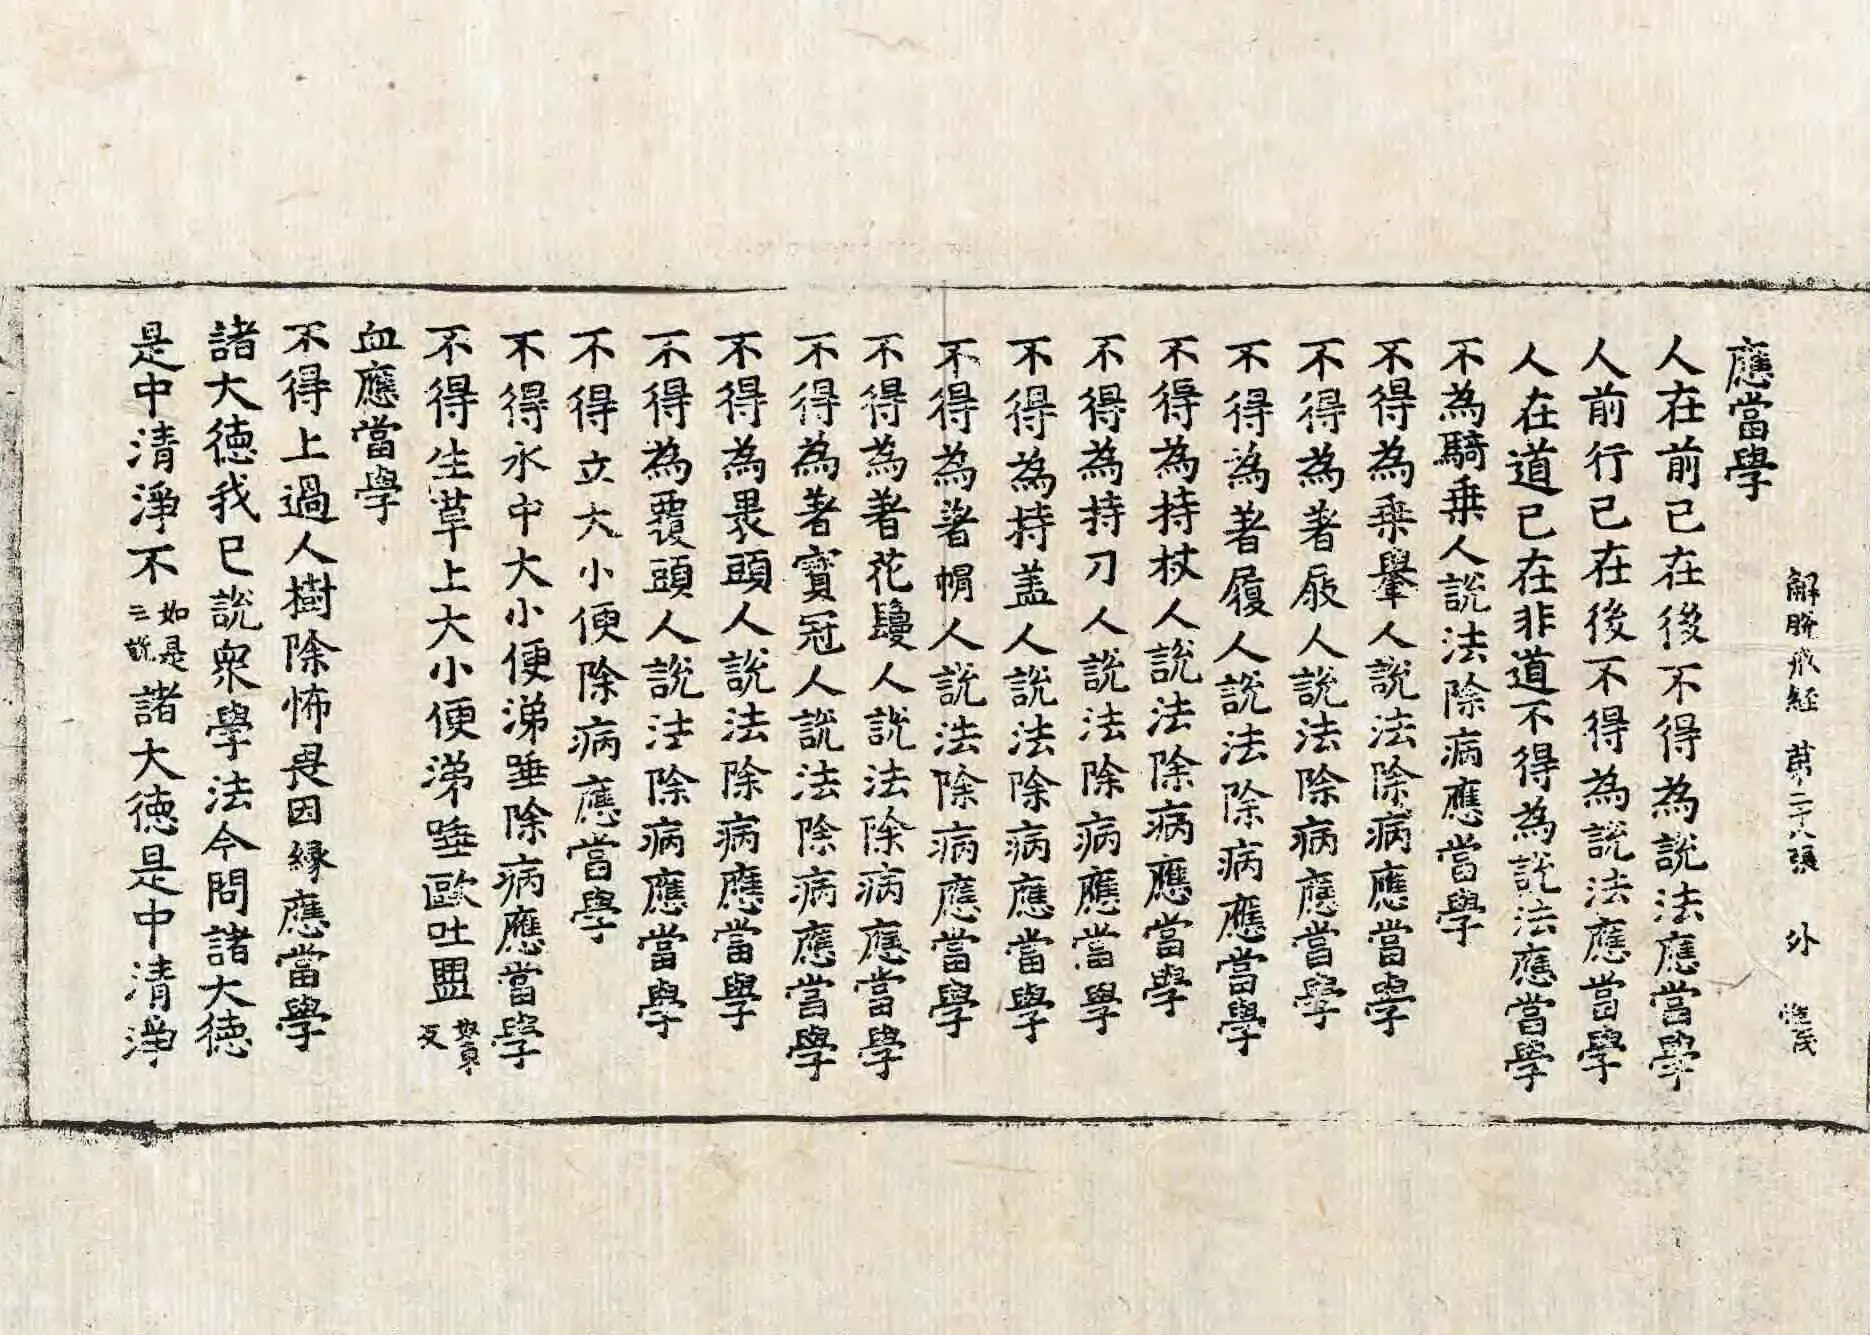 應當學
解脫戒經 第二十八張 外
人在前已在後不得為說法應當學
人前行已在後不得為說法應當學
人在道已在非道不得為說法應當學
不為騎乗人說法除病應當學
不得為乗轝人說法除病應當學
不得為著屐人說法除病應當學
不得為著履人說法除病應當學
不得為持杖人說法除病應當學
不得為持刀人說法除病應當學
不得為持盖人說法除病應當學
不得為著㡌人說法除病應當學
不得為著花鬘人說法除病應當學
不得為著寶冠人說法除病應當學
不得為裹頭人說法除病應當學
不得為覆頭人說法除病應當學
不得立大小便除病應當學
不得水中大小便涕唾除病應當學
不得生草上大小便涕唾歐吐盥
血應當學
不得上過人樹除怖畏因縁應當學
諸大徳我已說衆學法今問諸大徳
是中清淨不如是三說諸大徳是中清淨